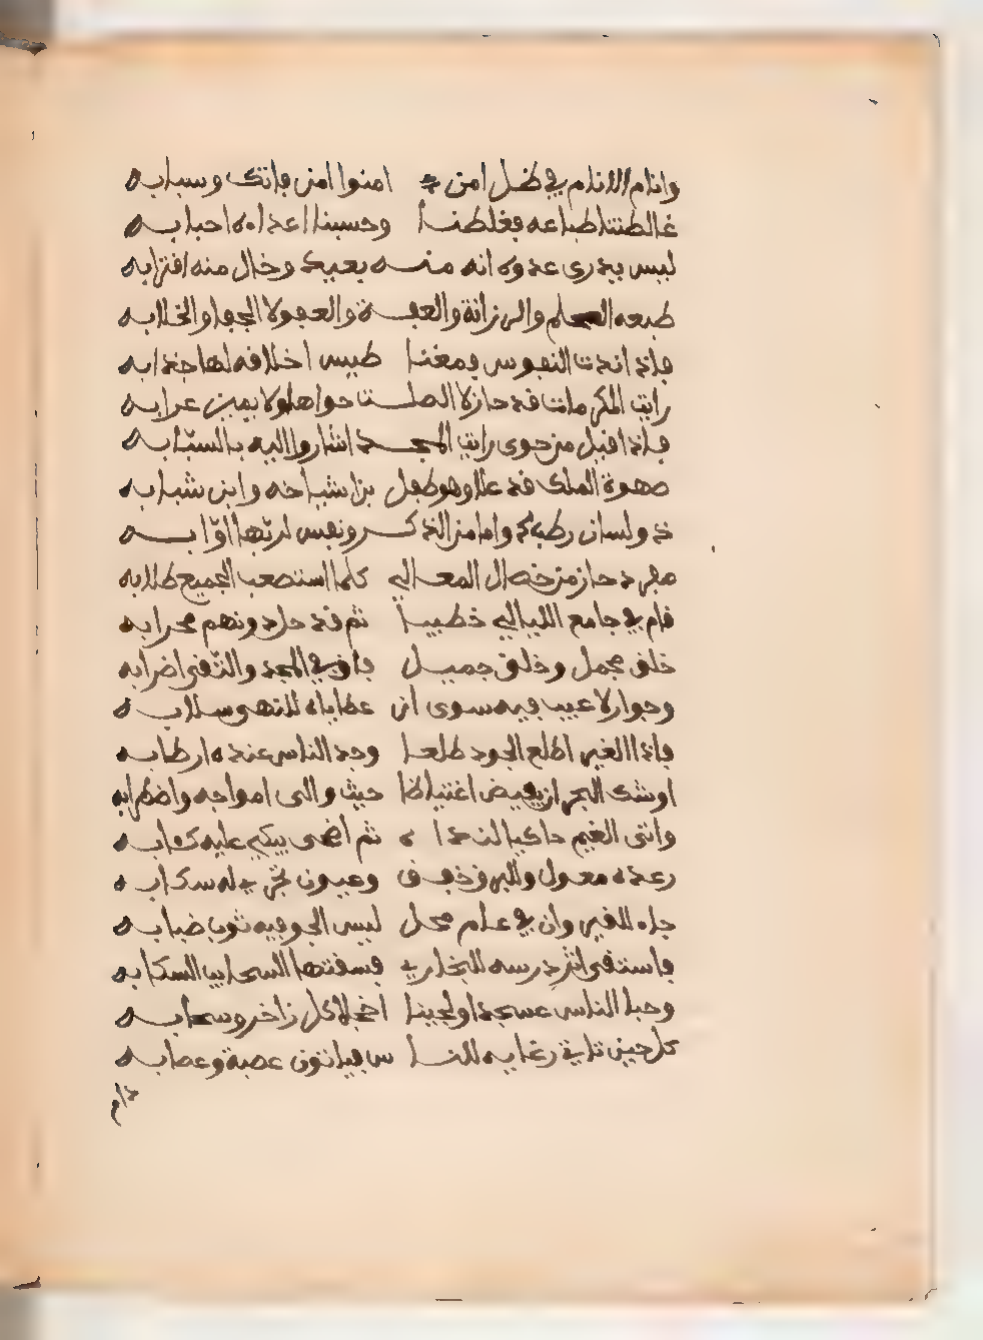 وانام الانام في ظل امن امنوا من فاتك وسبابه
غالطتنا طباعه فغلطنا وحسبنا اعداءه احبابه
ليس يدري عدوه انه منه بعيد وخال منه اقترابه
طبعه الحلم والرزانة والعفة والعفو لا الجفا والخلابه
فاذا ندت النفوس ومغنا طيس اخلاقه لها جذابه
رايت المكرمات قد حاز لا الصلت حواها ولا يمين عرابه
فاذا قيل من حوى رايت المجد اشاروا اليه بالسبابه
صهوة الملك قد علا وهو طفل بن اشياخه وابن شبابه
ذو لسان رطب من الذكر ونفس لربها اوابه
مفرد حاز من خصال المعالي كلما استصعب الجميع طلابه
قام في جامع الليالي خطيبا ثم قد حل دونهم محرابه
خلق مجمل وخلق جميل فاق في المجد والتقى اضرابه
وجوار لا عيب فيه سوى ان عطاياه للنهى سلابه
فاذا الغير اطلع الجود طلعا وجد الناس عنده ارطابه
اوشك البحر ان يغيض اغتياظا حيث والى امواجه واضطرابه
وانثنى الغيم حاكيا لنداه ثم اضحى يبكي عليه كئابه
رعده معول وللبرق خفق وعيون تجري له سكابه
جاه للغير وان في عام محل لبس الجو فيه ثوب ضبابه
فاستقى اثر درسه للبخاري فسقتها السحايب السكابه
وحبا الناس عسجدا ولجينا اخجلا كل زاخر وسحابه
كل حين تاتي رغايبه للنا س فياتون عصبة وعصابه
دام